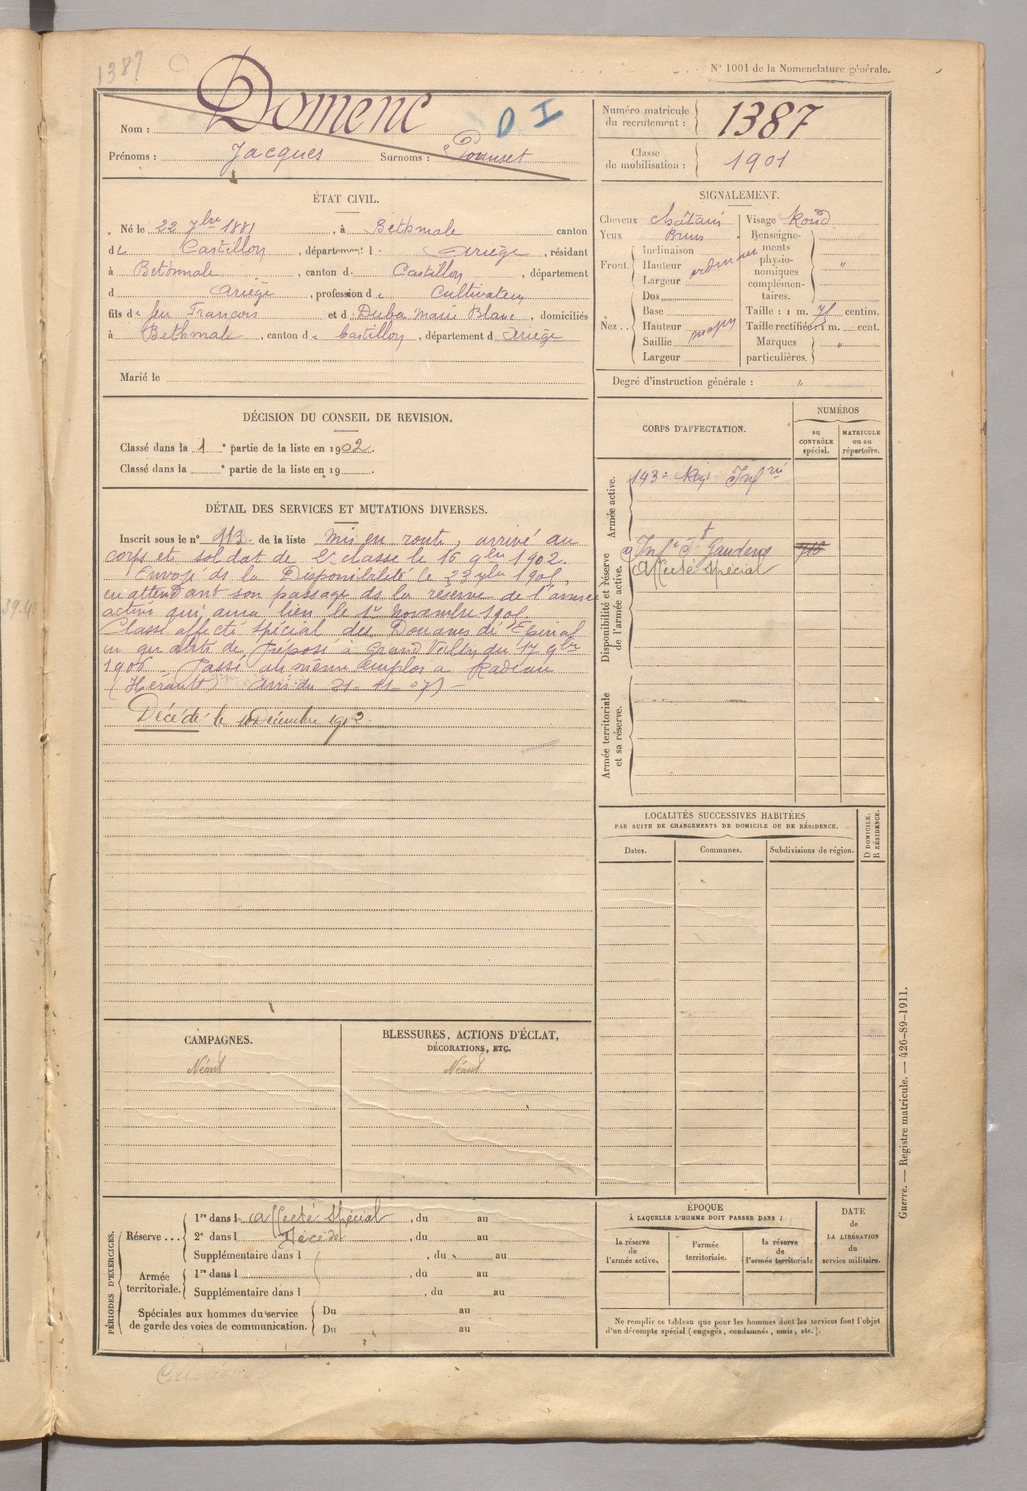 1387
N° 1001 de la Nomenclature générale.
Nom : Domenc
D I
Prénoms : Jacques Surnoms :
Numéro matricule du recrutement : 1387
Classe de mobilisation : 1901
ÉTAT CIVIL.
Né le 22 7bre 1881, à Bethmale canton
de Castillon, département d Ariège, résidant
à Bethmale, canton d Castillon, département
d Ariège, profession de Cultivateur
fils de feu François et d Duba Marie Blanc, domiciliés
à Bethmale, canton de Castillon, département d Ariège
Marié le
SIGNALEMENT.
Cheveux châtain
Yeux Bruns
Front. Inclinaison
Hauteur ordinaire
Largeur
Nez.. Dos
Base
Hauteur moyen
Saillie
Largeur
Visage Rond
Renseignements physionomiques complémentaires. "
Taille : 1 m. centim.
Taille rectifiée : 1 m. cent.
Marques particulières. "
Degré d'instruction générale : "
DÉCISION DU CONSEIL DE REVISION.
Classé dans la 1 e partie de la liste en 1902.
Classé dans la e partie de la liste en 19 .
CORPS D'AFFECTATION.
NUMÉROS
AU CONTRÔLE spécial.
MATRICULE ou au répertoire.
Armée active.
143e Regt Infrie
Disponibilité et réserve de l'armée active.
Infie St Gaudens
Affecté spécial
Armée territoriale et sa réserve.
DÉTAIL DES SERVICES ET MUTATIONS DIVERSES.
Inscrit sous le n° 113 de la liste Mis en route, arrivé au
corps et soldat de 2e classe le 16 9bre 1902.
Envoyé ds la Disponibilité le 23 7bre 1905,
en attendant son passage ds la réserve de l'armée
active qui aura lieu le 1er Novembre 1905.
Classé affecté spécial des Douanes d'Épinal
en qualité de Préposé à Grand Valtin du 17 9bre
1906. Passé au même emploi à
(Hérault) avis du 21-11-07
Décédé le Décembre 1912.
LOCALITÉS SUCCESSIVES HABITÉES
PAR SUITE DE CHANGEMENTS DE DOMICILE OU DE RÉSIDENCE.
Dates.
Communes.
Subdivisions de région.
D DOMICILE.
R RÉSIDENCE.
CAMPAGNES.
Néant
BLESSURES, ACTIONS D'ÉCLAT,
DÉCORATIONS, ETC.
Néant
PÉRIODES D'EXERCICES.
Réserve... 1re dans l Affecté Spécial, du au
2e dans l Décédé, du au
Supplémentaire dans l , du au
Armée territoriale. 1re dans l , du au
Supplémentaire dans l , du au
Spéciales aux hommes du service de garde des voies de communication. Du au
Du au
ÉPOQUE
À LAQUELLE L'HOMME DOIT PASSER DANS :
la réserve de l'armée active.
l'armée territoriale.
la réserve de l'armée territoriale
DATE de LA LIBÉRATION du service militaire.
Ne remplir ce tableau que pour les hommes dont les services font l'objet
d'un décompte spécial (engagés, condamnés, omis, etc.).
Guerre. — Registre matricule. — 426-89-1911.